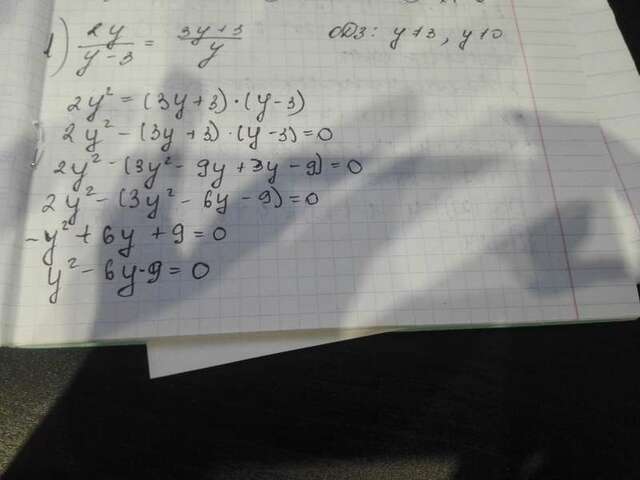 1) 2y/(y-3) = (3y+3)/y ОДЗ: y≠3, y≠0
2y² = (3y+3)·(y-3)
2y² - (3y+3)·(y-3)=0
2y² - (3y² - 9y + 3y - 9)=0
2y² - (3y² - 6y - 9)=0
-y² + 6y + 9 = 0
y² - 6y - 9 = 0